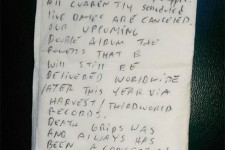 All CURRENTLY SCHEDULED
LIVE DATES ARE CANCELED.
OUR UPCOMING
DOUBLE ALBUM THE
POWERS THAT B
WILL STILL BE
DELIVERED WORLDWIDE
LATER THIS YEAR VIA
HARVEST/THIRDWORLD
RECORDS.
DEATH GRIPS WAS
AND ALWAYS HAS
BEEN A CONCEPTUAL